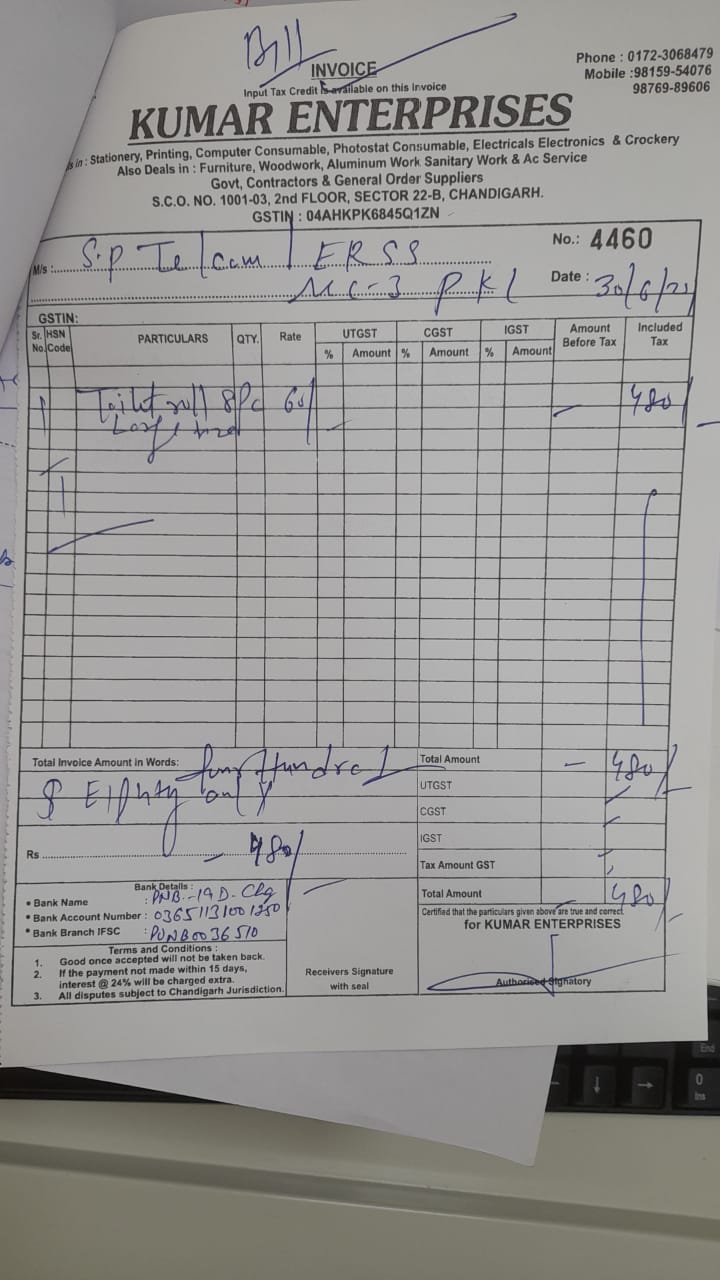 Bill
INVOICE
Input Tax Credit is available on this Invoice
Phone : 0172-3068479
Mobile :98159-54076
98769-89606
KUMAR ENTERPRISES
in : Stationery, Printing, Computer Consumable, Photostat Consumable, Electricals Electronics & Crockery
Also Deals in : Furniture, Woodwork, Aluminum Work Sanitary Work & Ac Service
Govt, Contractors & General Order Suppliers
S.C.O. NO. 1001-03, 2nd FLOOR, SECTOR 22-B, CHANDIGARH.
GSTIN : 04AHKPK6845Q1ZN
M/s : S.P Telecom / ERSS
No.: 4460
MC-3 PKL
Date : 30/6/21
GSTIN:
Sr. No. HSN Code PARTICULARS QTY. Rate UTGST CGST IGST Amount Before Tax Included Tax
% Amount % Amount % Amount
1 Toilet roll 8Pc 60/ - 480/
Large size
Total Invoice Amount in Words: four Hundred
& Eighty only
Rs 480/
Total Amount - 480/
UTGST
CGST
IGST
Tax Amount GST
Total Amount 480/
Bank Details :
• Bank Name : PNB-19 D-Chg
* Bank Account Number :
* Bank Branch IFSC : PUNB0036510
Terms and Conditions :
1. Good once accepted will not be taken back.
2. If the payment not made within 15 days,
interest @ 24% will be charged extra.
3. All disputes subject to Chandigarh Jurisdiction.
Receivers Signature
with seal
Certified that the particulars given above are true and correct.
for KUMAR ENTERPRISES
Authorised Signatory
End
0
Ins